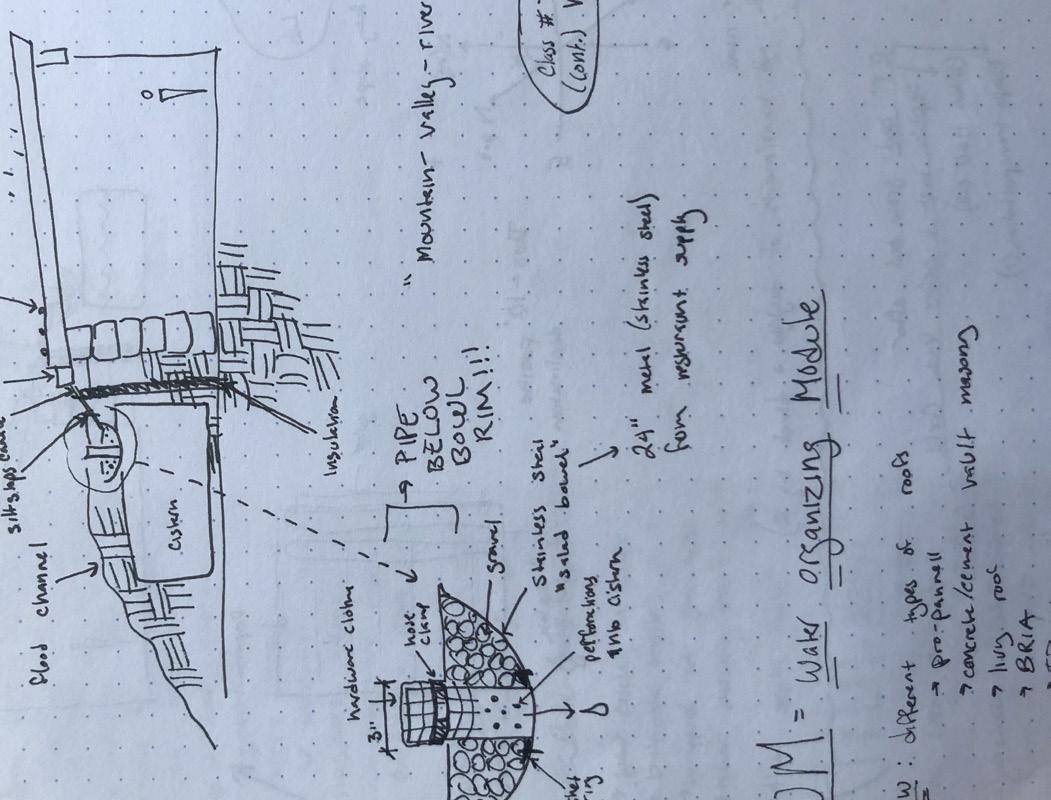 Class #
(cont.)
" Mountain - valley - river
silt stops
flood channel
cistern
Insulation
→ PIPE
BELOW
BOWL
RIM!!!
hardware clothe
hose
clamp
3"
gravel
Stainless Steil
"salad bowel"
24" metal (stainless steel)
from restaurant supply
perforations
into cistern
M = Water Organizing Module
W : different types of roofs
→ pro-pannell
→ concrete/cement vault
→ living roof
→ BRIA